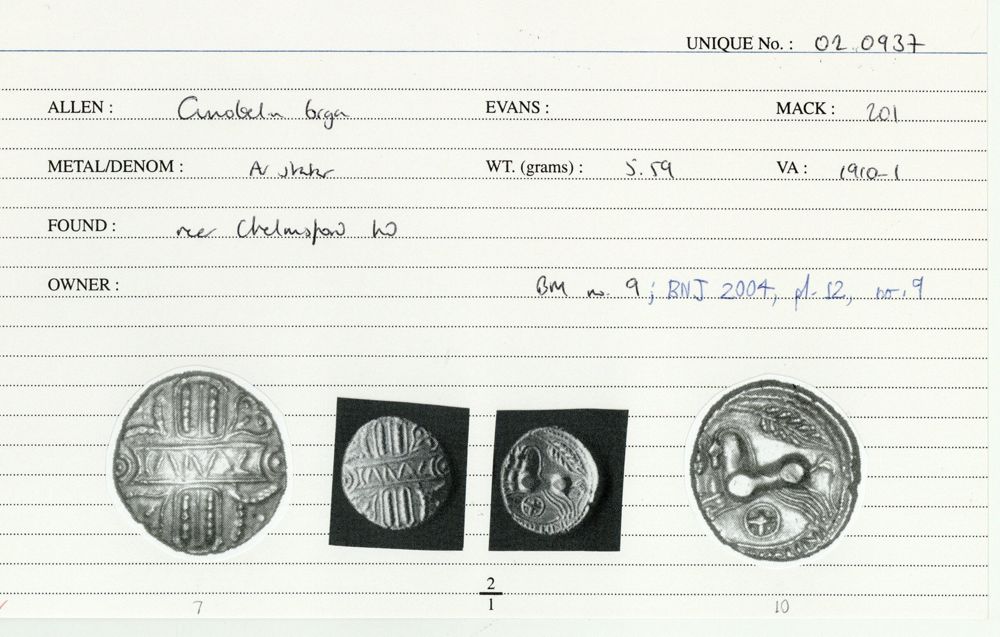 UNIQUE No. : 02.0937
ALLEN : Cunobelin biga EVANS : MACK : 201
METAL/DENOM : AV stater WT. (grams) : 5.59 VA : 1910-1
FOUND : near Chelmsford
OWNER : BM no. 9; BNJ 2004, pl. 12, no. 9
2
1
7 10